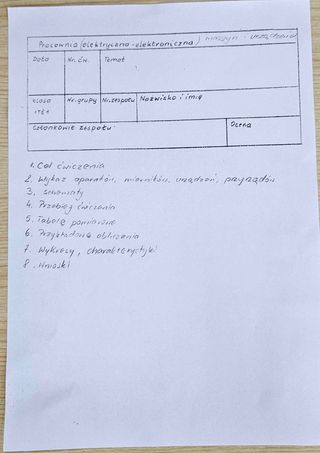 Pracownia (elektryczno-elektroniczna) maszyn i urządzeń
Data Nr. ćw. Temat
Klasa Nr. grupy Nr. zespołu Nazwisko i imię
Członkowie zespołu Ocena
1. Cel ćwiczenia
2. Wykaz aparatów, mierników, urządzeń, przyrządów
3. Schematy
4. Przebieg ćwiczenia
5. Tabele pomiarowe
6. Przykładowe obliczenia
7. Wykresy, charakterystyki
8. Wnioski